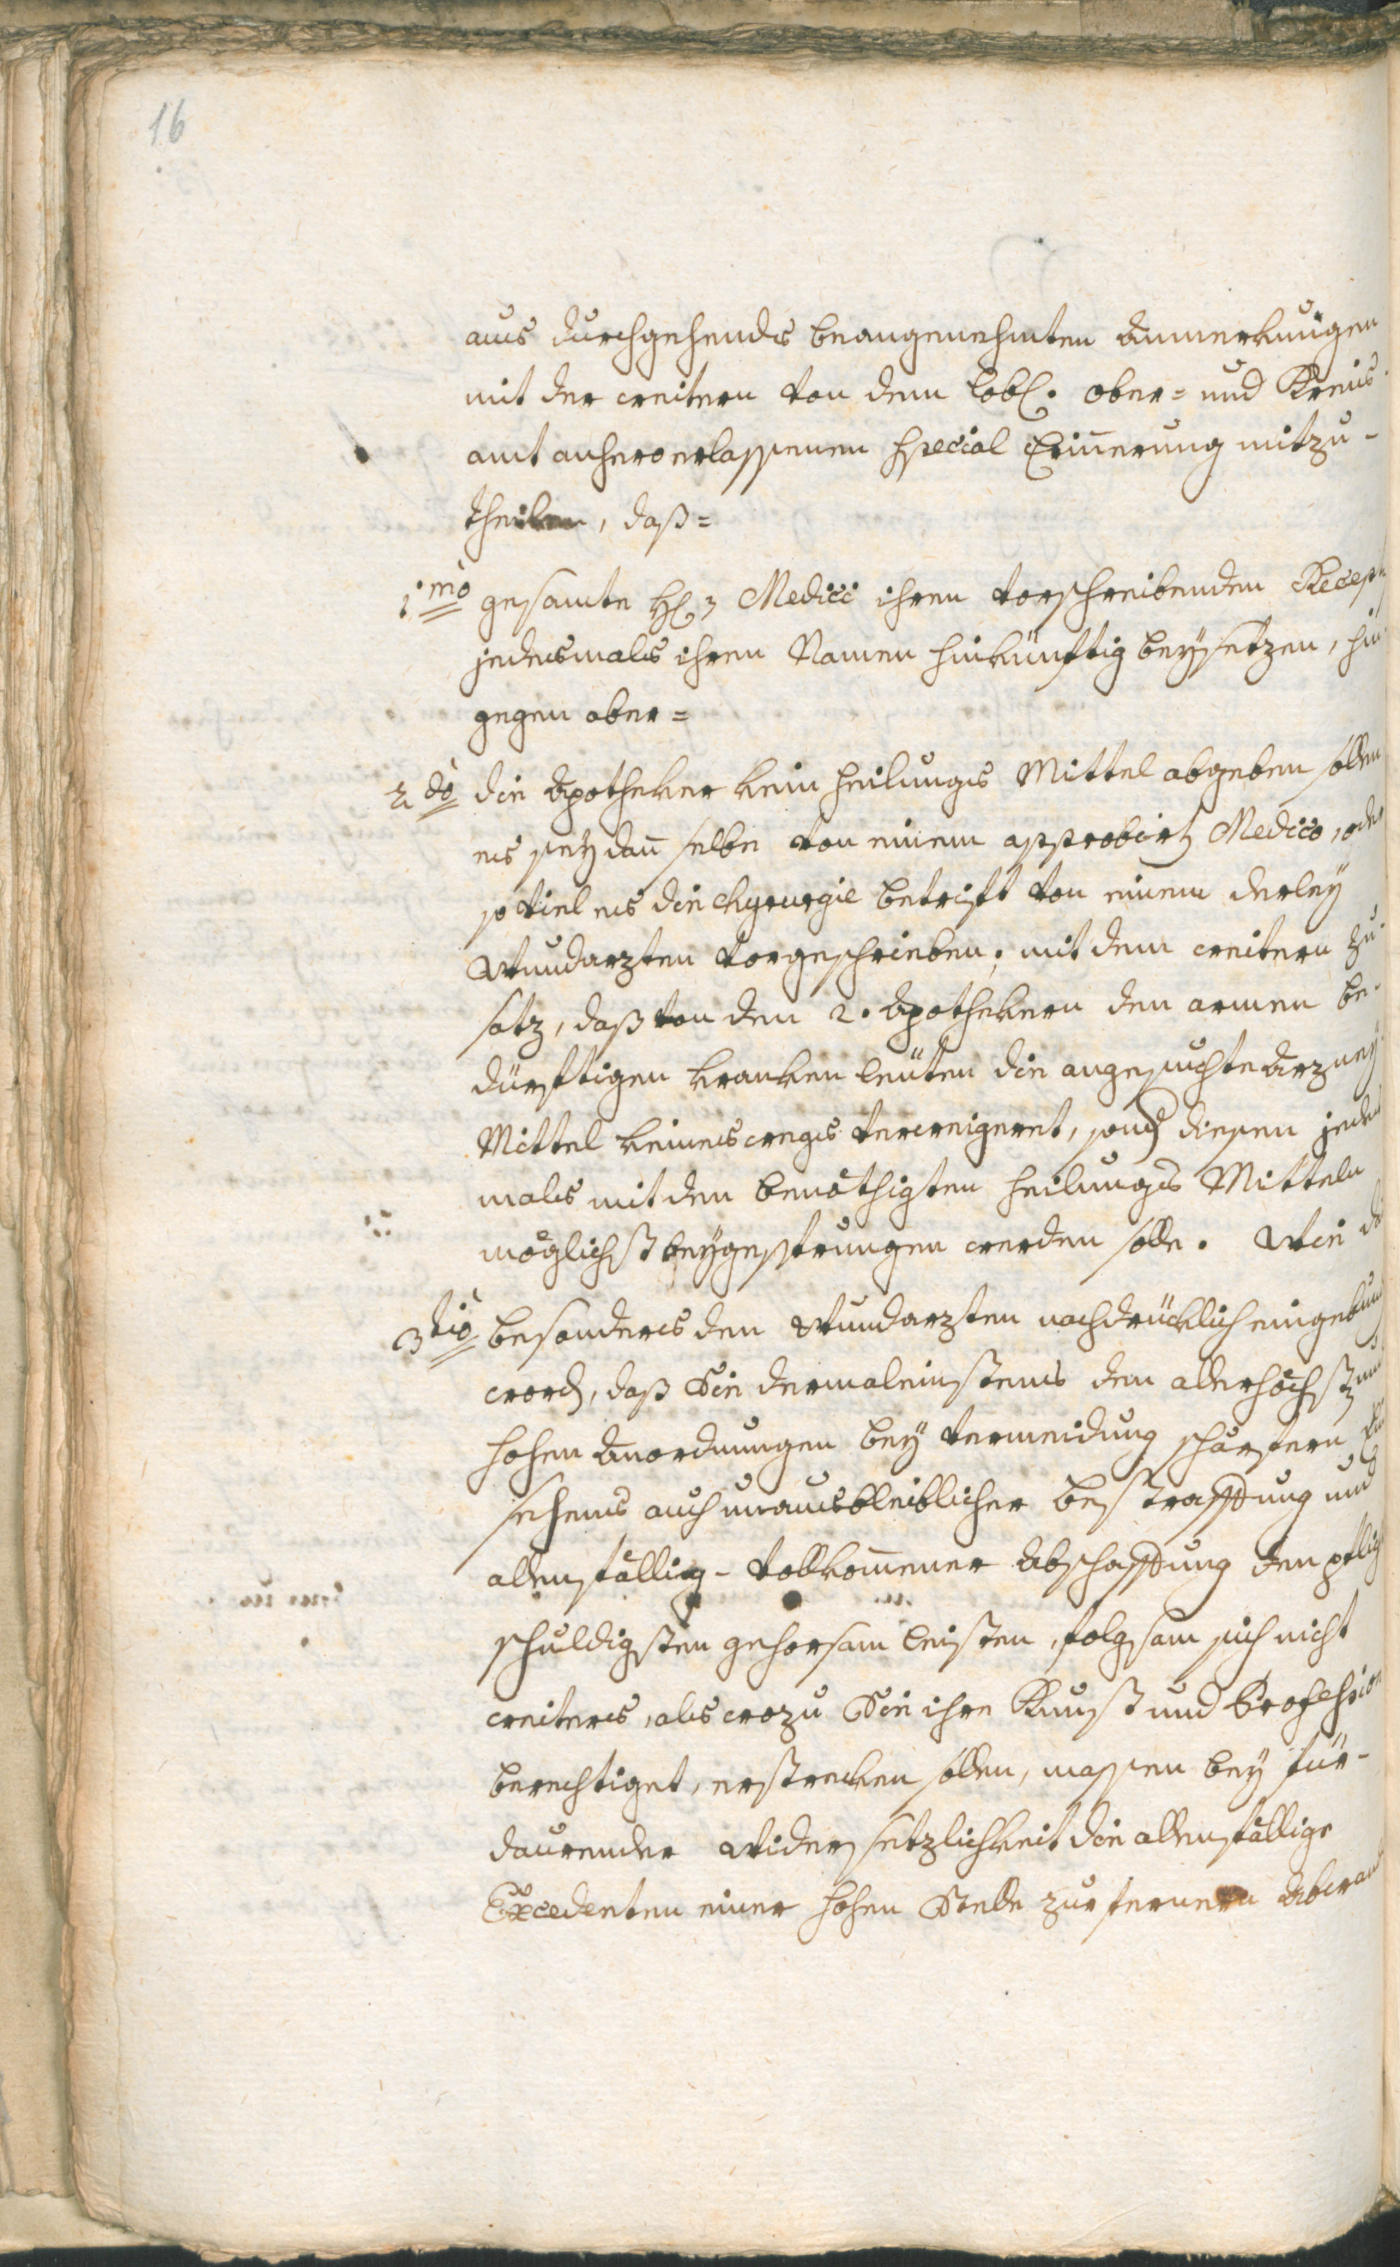 16
aus durchgehends beangenehmten Anmerkungen
mit der weitern von dem Lobl. Ober- und Kreis-
amt anhero erlassenen special Erinnerung mitzu-
theilen, daß=
1mo gesamte HH. Medici ihren vorschreibenden Recept
jedesmals ihren Namen hinkünftig beysetzen, hin
gegen aber=
2do die Apotheker kein heilungs Mittel abgeben sollen
es sey dan̄ selbe von einem approbirt Medico, oder
so viel es die Chyrurgie betrift von einem derley
Wundarzten vorgeschrieben; mit dem weitern Zu-
satz, daß von den 2. Apothekern den armen be-
dürftigen kranken leüten die angesuchte Arzney
Mittel keineswegs verweigeret, sond diesen jedes
mals mit den benöthigten heilungs Mitteln
möglichst beygesprungen werden solle. Wie da
3tio besonders den Wundarzten nachdrücklich eingebund
word, daß Sie dermaleinstens den allerhöchst und
hohen Anordnungen bey vermeidung schärferen Ein
sehens auch unausbleiblicher bestraffung und
allenfällig- vollkom̄ener Abschaffung den pflicht
schuldigsten gehorsam leisten, folgsam sich nicht
weiters, als wozu Sie ihre Kunst und Profession
berechtiget, erstrecken sollen, massen bey für-
daurender Widersetzlichkeit die allenfällige
Excedenten einer hohen Stelle zur fernern